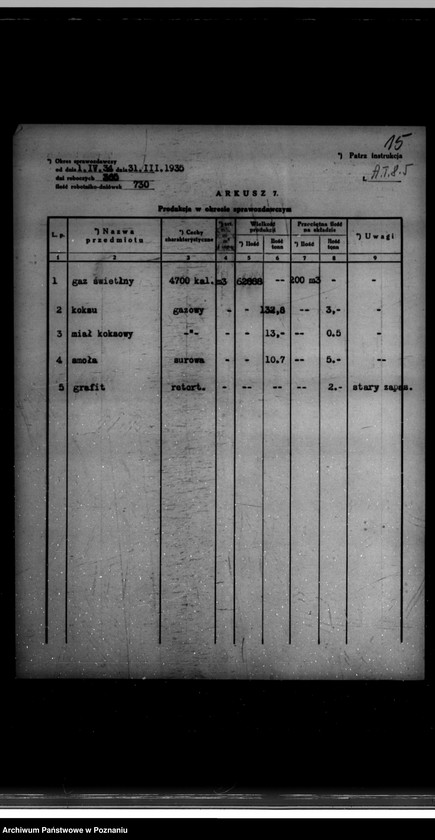 15
*) Okres sprawozdawczy
od dnia 1. IV. 34 dnia 31. III. 1935
dni roboczych 365
Ilość robotniko-dniówek 730
*) Patrz instrukcja
L. A.T.8.5
ARKUSZ 7.
Produkcja w okresie sprawozdawczym
L. p. *) Nazwa przedmiotu *) Cechy charakterystyczne Wielkość produkcji *) Ilość Ilość tonn Przeciętna ilość na składzie *) Ilość Ilość tonn *) Uwagi
1 2 3 4 5 6 7 8 9
1 gaz świetlny 4700 kal. m3 -- 200 m3 - -
2 koksu gazowy - - 132,8 -- 3,- -
3 miał koksowy -"- - - 13,- -- 0.5 -
4 smoła surowa - - 10.7 -- 5.- --
5 grafit retort. - -- -- -- 2.- stary zapas.
Archiwum Państwowe w Poznaniu